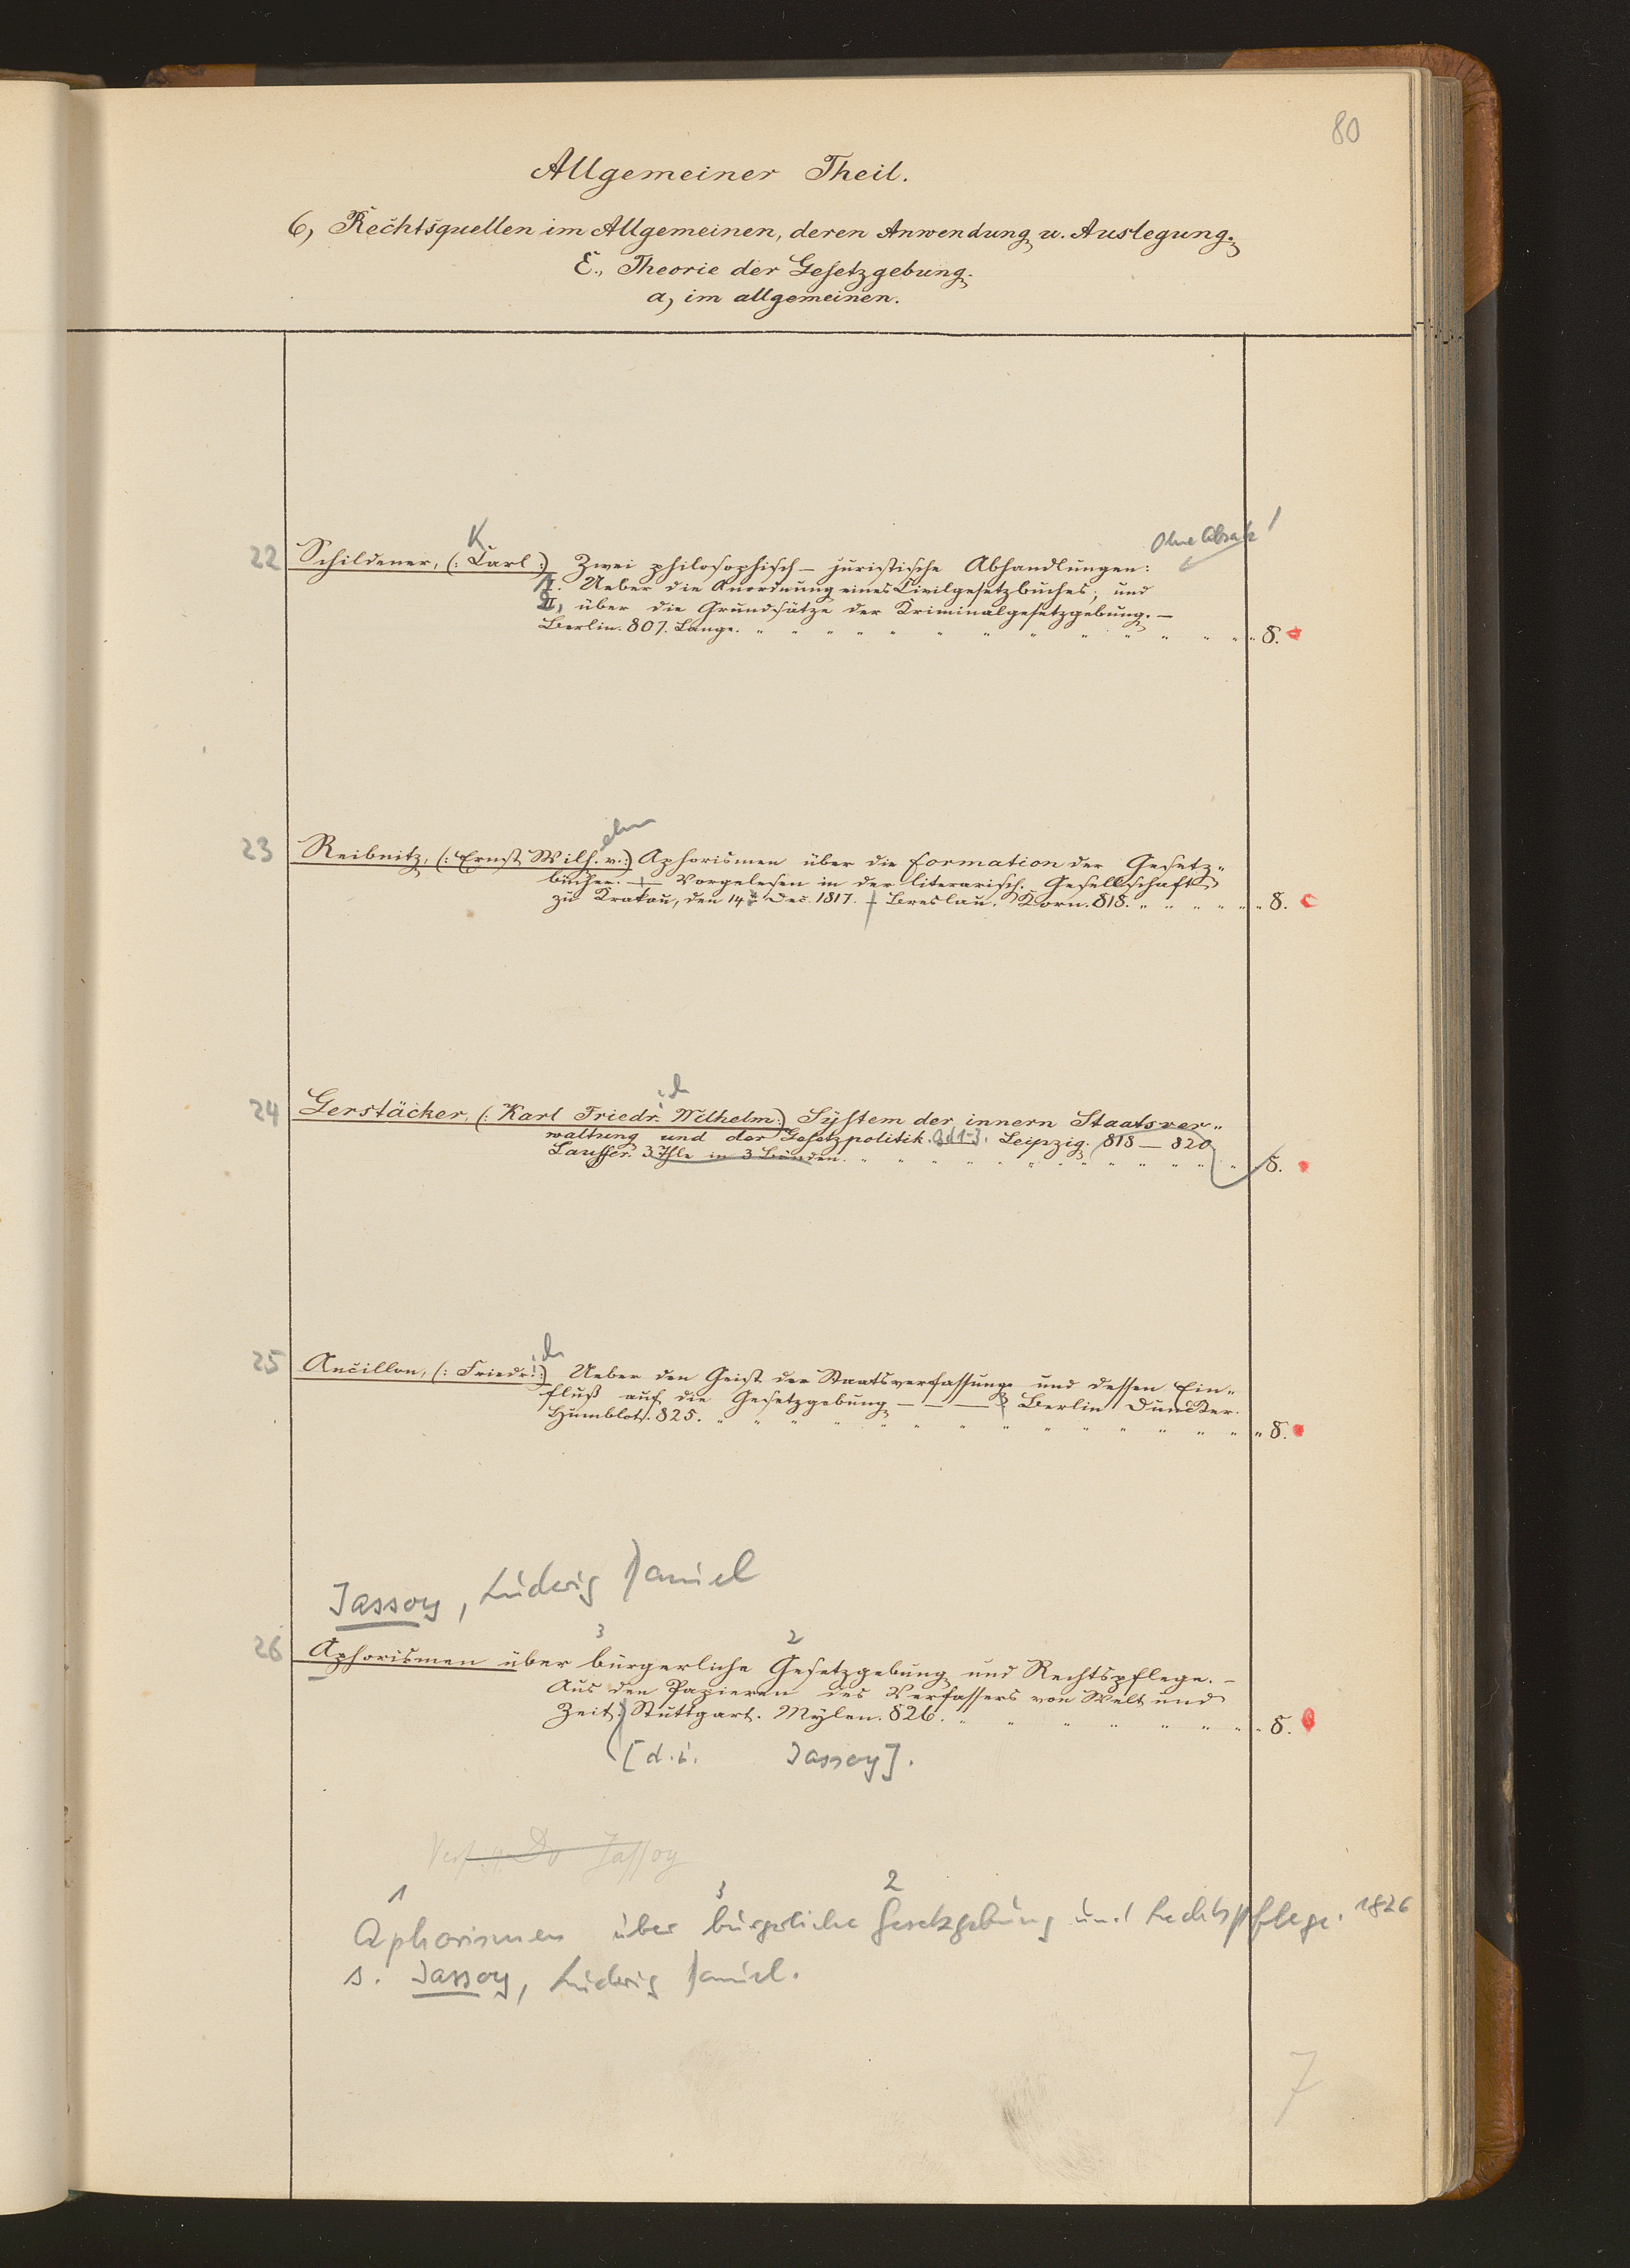 80
Allgemeiner Theil.
6, Rechtsquellen im Allgemeinen, deren Anwendung u. Auslegung.
E., Theorie der Gesetzgebung.
a, im allgemeinen.
K
Ohne Absatz!
22 Schildener, (: Carl :) Zwei philosophisch-juristische Abhandlungen:
I. Ueber die Anordnung eines Civilgesetzbuches; und
II, über die Grundsätze der Kriminalgesetzgebung. —
Berlin. 807. Lange. " " " " " " " " " " " " 8.
elm
23 Reibnitz, (: Ernst Wilh. v. :) Aphorismen über die Formation der Gesetz-
bücher. — Vorgelesen in der literarisch. Gesellschaft
zu Krakau, den 14 Dec. 1817. — Breslau. Korn. 818. " " " " " 8.
ich
24 Gerstäcker, (: Karl Friedr. Wilhelm :) System der innern Staatsver-
waltung und der Gesetzpolitik. Bd 1-3. Leipzig. 818 — 820
Lauffer. 3 Thle in 3 Bänden. " " " " " " " " " " 8.
ich
25 Ancillon, (: Friedr. :) Ueber den Geist der Staatsverfassung und dessen Ein-
fluß auf die Gesetzgebung — — — Berlin Duncker.
Humblot. 825. " " " " " " " " " " " " " " 8.
Jassoy, Ludwig Daniel
3 2
26 Aphorismen über bürgerliche Gesetzgebung und Rechtspflege. —
Aus den Papieren des Verfassers von Welt und
Zeit. Stuttgart. Mylen. 826. " " " " " " " 8.
[d.i. Jassoy].
Verf. Jassoy
1 3 2
Aphorismen über bürgerliche Gesetzgebung und Rechtspflege. 1826
s. Jassoy, Ludwig Daniel.
7